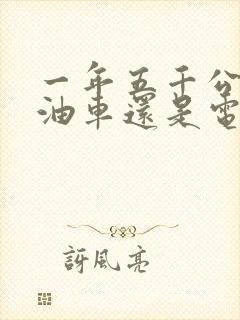 一年五千公
油車還是電
訝風亮